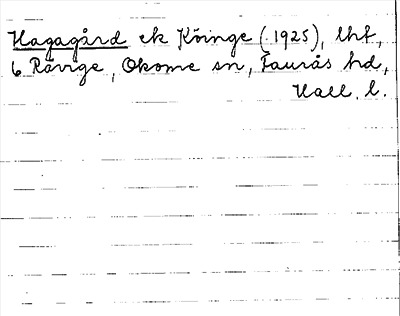 Hagagård ek Köinge (1925), lhf,
6 Rävige, Okome sn, Faurås hd,
Hall. l.